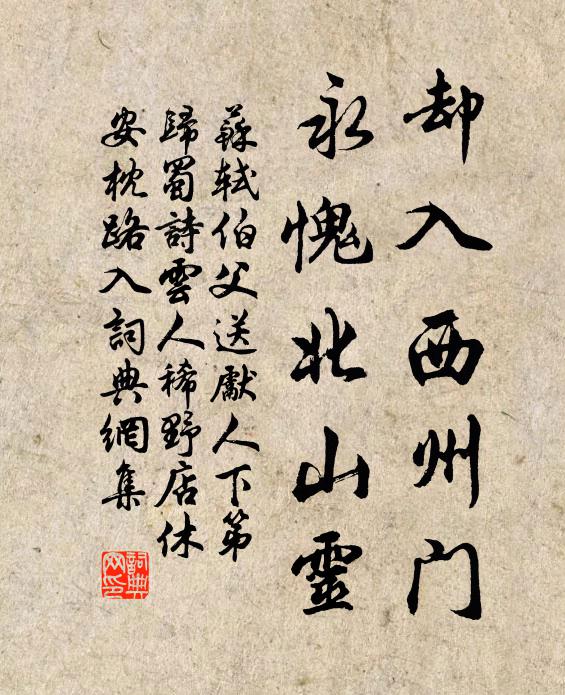 却入西州门
永愧北山靈
蘇軾伯父送獻人下第
歸蜀詩雲人稀野店休
安枕路入詞典網集
詞典
网印